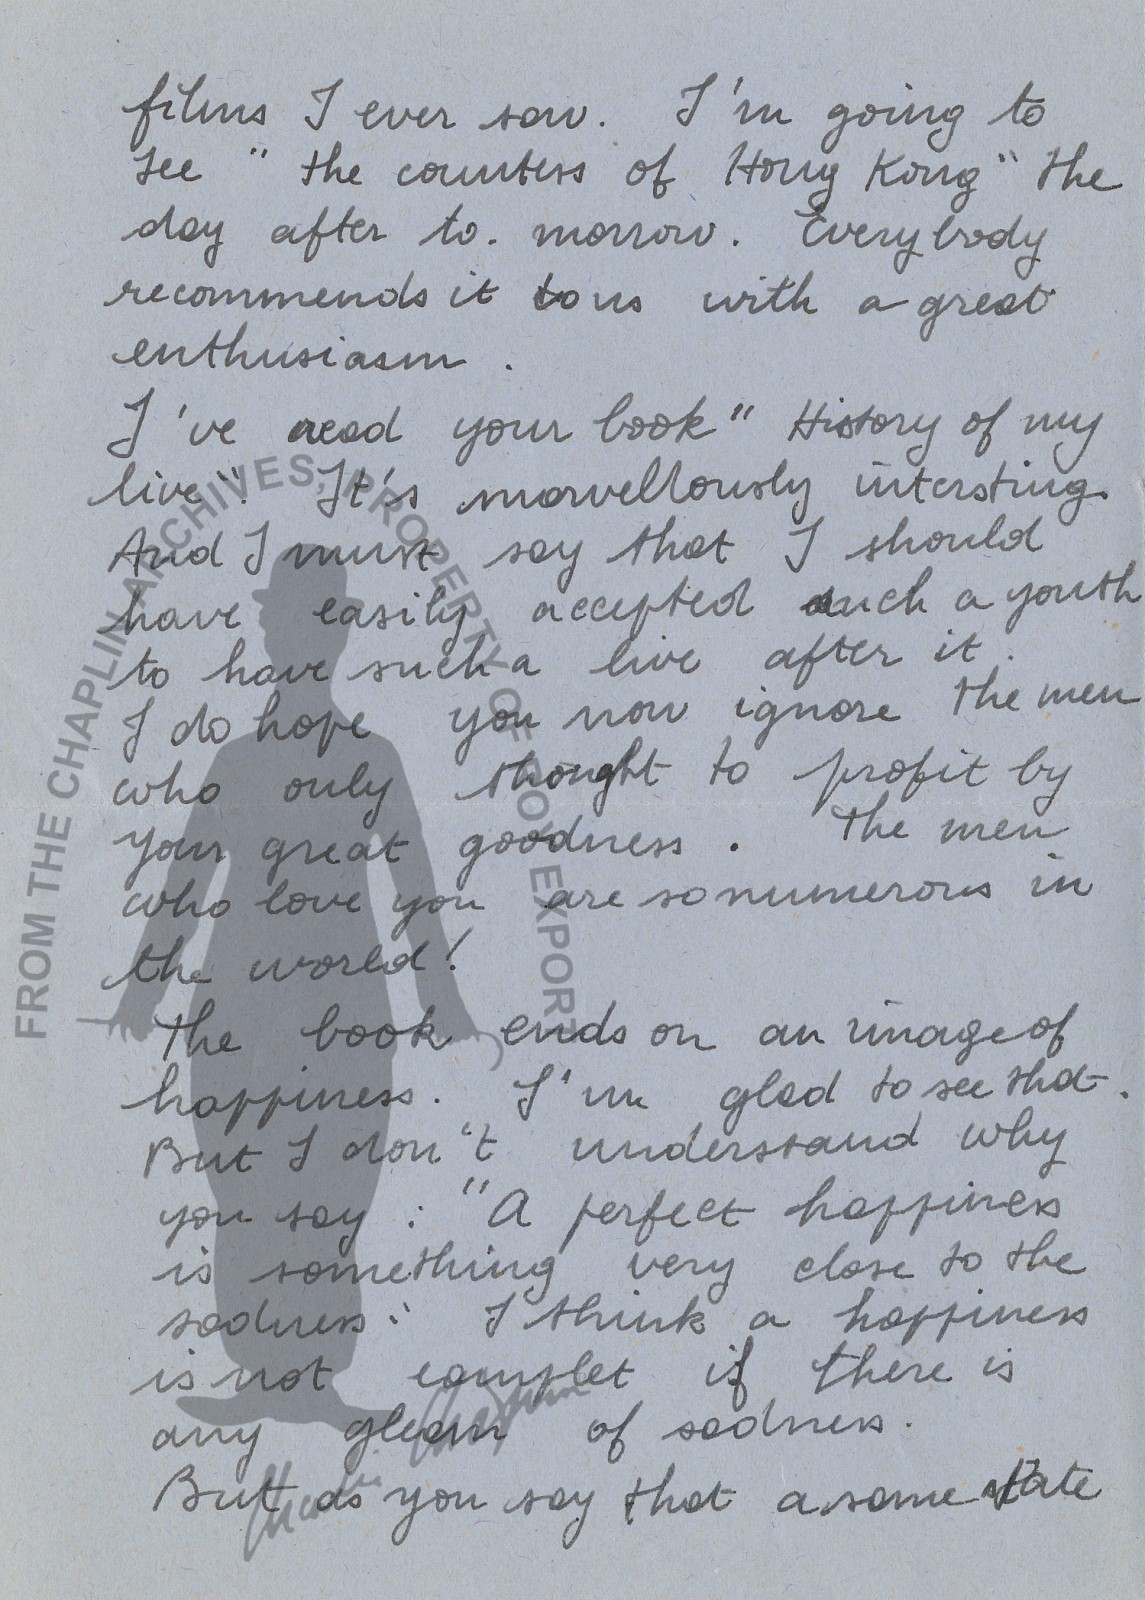 films I ever saw. I'm going to
see " the countess of Hong Kong" the
day after to. morrow. Everybody
recommends it to us with a great
enthusiasm .
I've read your book " History of my
live". It's marvellously intersting.
And I must say that I should
have easily accepted such a youth
to have such a live after it.
I do hope you now ignore the men
who only thought to profit by
your great goodness . The men
who love you are so numerous in
the world!
The book ends on an image of
happiness. I'm glad to see that.
But I don't understand why
you say : "A perfect happiness
is something very close to the
sadness". I think a happiness
is not complet if there is
any gleam of sadness.
But as you say that a same state
FROM THE CHAPLIN ARCHIVES, PROPERTY OF ROY EXPORT